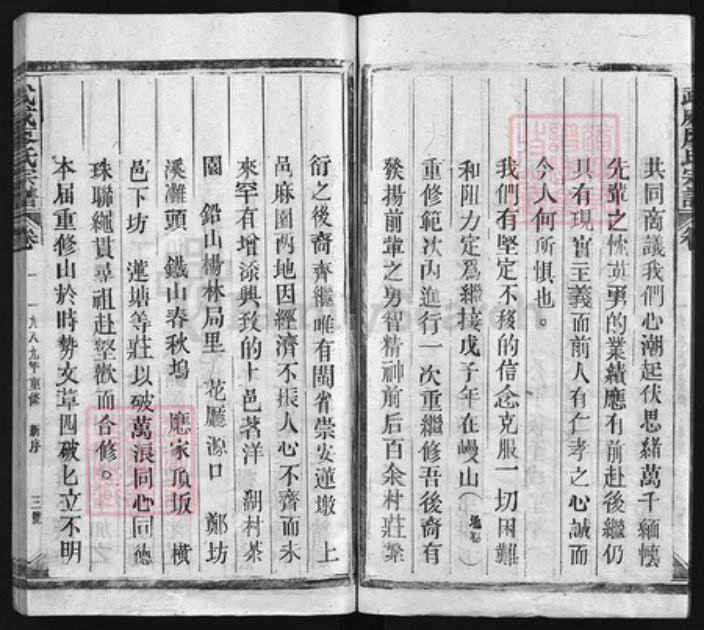 共同商議我們心潮起伏思緒萬千緬懷
先輩之恢英事的業績應有前赴後繼仍
具有現實主義而前人有仁孝之心誠而
今人何所惧也。
我們有堅定不移的信念克服一切困難
和阻力定爲繼接戊子年在嶁山（地名）
重修範次內進行一次重繼修吾後裔有
發揚前輩之勇智精神前后百余村莊繁
衍之後裔齊繼唯有閩省崇安蓮墩 上
邑麻園两地因經濟不振人心不齊而未
來罕有增添興致的上邑茗洋 湖村茶
園 鉛山楊林局里 花廳源口 鄭坊
溪灘頭 鐵山春秋塢 應家頂坂 横
邑下坊 蓮塘等莊以破萬浪同心同德
珠聯繩貫尋祖赴堅歡而合修。
本届重修山於時勢文革四破匕立不明
武威廖氏宗譜
卷
一
一九八九年重修 新序
三號